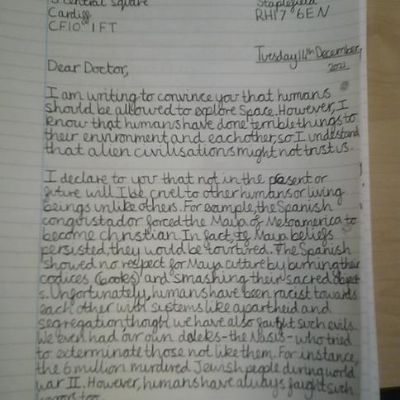 Central Square
Cardiff
CF10 1FT
Staplefield
RH17 6EN
Tuesday 14th December,
Dear Doctor,
I am writing to convince you that humans
should be allowed to explore space. However, I
know that humans have done terrible things to
their environment and eachother, so I understand
that alien civilisations might not trust us.
I declare to you that not in the present or
future will I be cruel to other humans or living
beings unlike others. For example, the Spanish
conquistador forced the Maya of Mesoamerica to
become christian. In fact, if Maya beliefs
persisted, they would be tourtired. The Spanish
showed no respect for Maya culture by burning their
codices (books) and smashing their sacred object
s. Unfortunately, humans have been racist towards
each other with systems like apartheid and
segregation though we have also fought such evils.
We even had our own daleks - the Nasis - who tried
to exterminate those not like them. For instance,
the 6 million murdered Jewish people during world
war II. However, humans have always fought such